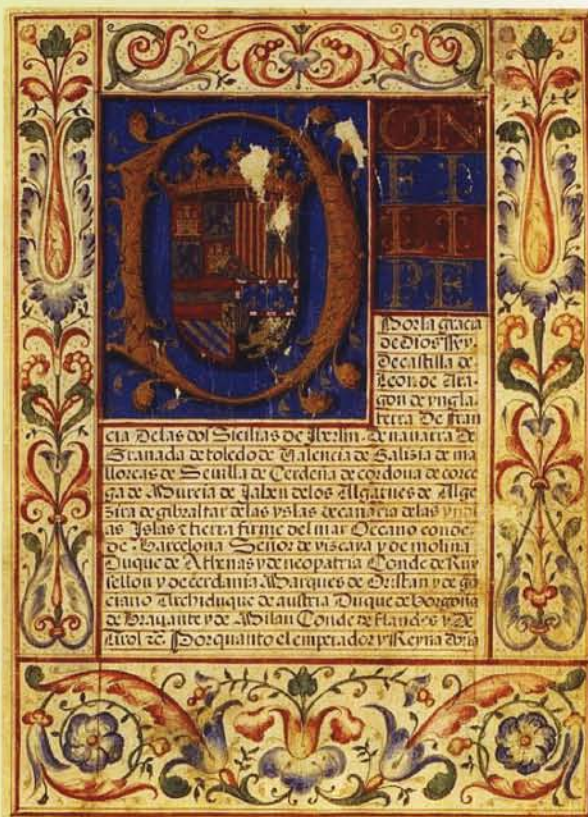 DON
FI
LI
PE
Por la gracia
de Dios Rey
De castilla de
Leon de Ara-
gon de yngla-
terra De fran
cia De las dos Sicilias de Jherlm De navarra De
Granada de toledo de Valencia de Galizia de ma
llorcas de Sevilla de Cerdeña de cordova de corce
ga de Murcia de Jahen de los Algarves de Alge
zira de gibraltar de las yslas de canaria de las yndi
as Islas z tierra firme del mar Oceano conde
de Barcelona Señor de viscaya y de molina
Duque de Athenas y de neopatria Conde de Ruy
sellon y de cerdania Marques de Oristan y de go
ciano Archiduque de austria Duque de borgoña
de Bravante y de Milan Conde de flandes y De
tirol zc. Por quanto el emperador y Reyna